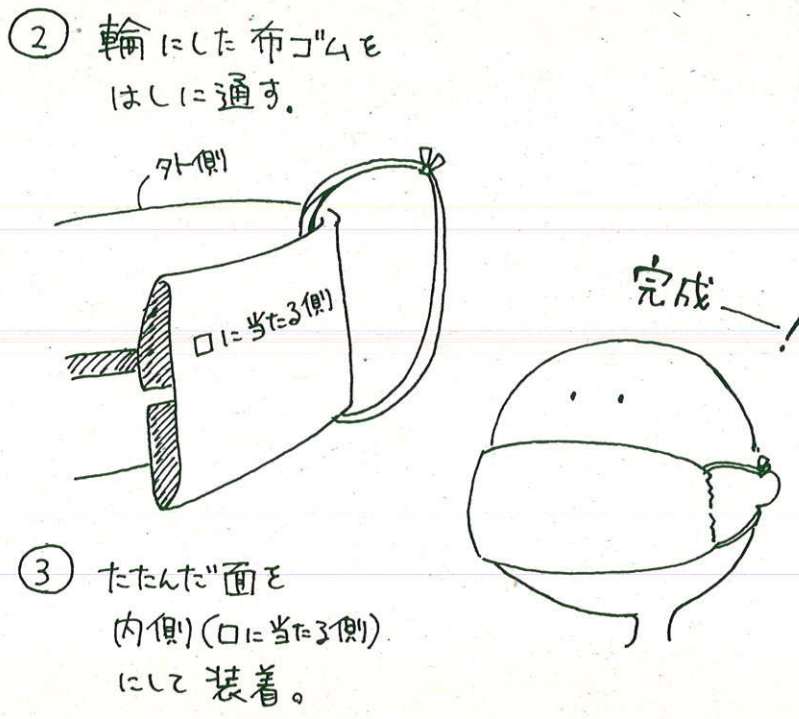 ② 輪にした布ゴムを
はしに通す.
外側
口に当たる側
完成!
③ たたんだ面を
内側(口に当たる側)
にして装着。